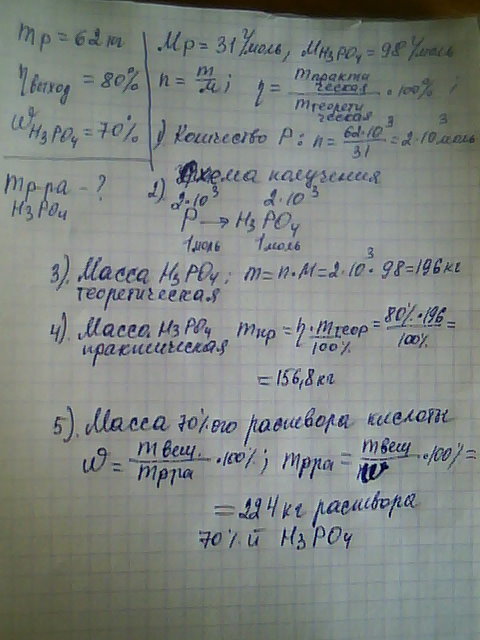 mр = 62 кг
ηвыход = 80%
ωH3PO4 = 70%
mр-ра - ?
H3PO4
Mр = 31 г/моль, MH3PO4 = 98 г/моль
n = m/M; η = mпрактическая/mтеоретическая · 100% ;
1) Количество P: n = 62·10³/31 = 2·10³ моль
2) Схема получения
2·10³ 2·10³
P → H3PO4
1моль 1моль
3). Масса H3PO4: m = n·M = 2·10³·98 = 196 кг
теоретическая
4). Масса H3PO4 mпр = η·mтеор/100% = 80%·196/100% =
практическая
= 156,8 кг
5). Масса 70%ого раствора кислоты
ω = mвещ./mрра · 100%; mрра = mвещ/ω · 100% =
= 224 кг раствора
70%й H3PO4